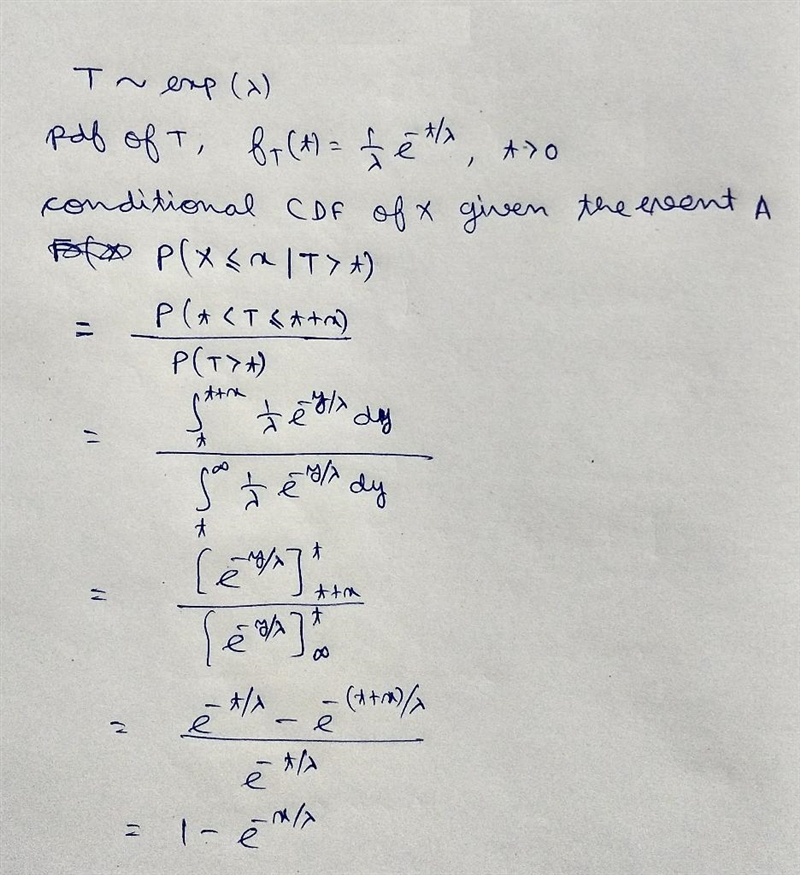 T ~ exp (λ)
pdf of T, f_T(t) = 1/λ e^{-t/λ}, t>0
conditional CDF of X given the event A
P(X ≤ x | T > t)
= P(t < T ≤ t+x) / P(T > t)
= ∫_t^{t+x} 1/λ e^{-y/λ} dy / ∫_t^∞ 1/λ e^{-y/λ} dy
= [e^{-y/λ}]_{t+x}^t / [e^{-y/λ}]_∞^t
= e^{-t/λ} - e^{-(t+x)/λ} / e^{-t/λ}
= 1 - e^{-x/λ}